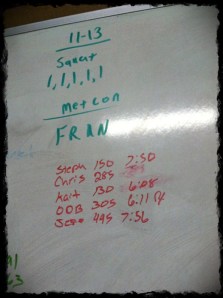 11-13
Squat
1,1,1,1,1
Metcon
FRAN
Steph 150 7:50
Chris 285
Kait 130 6:08
OOB 305 6:11
Jess 495 7:56